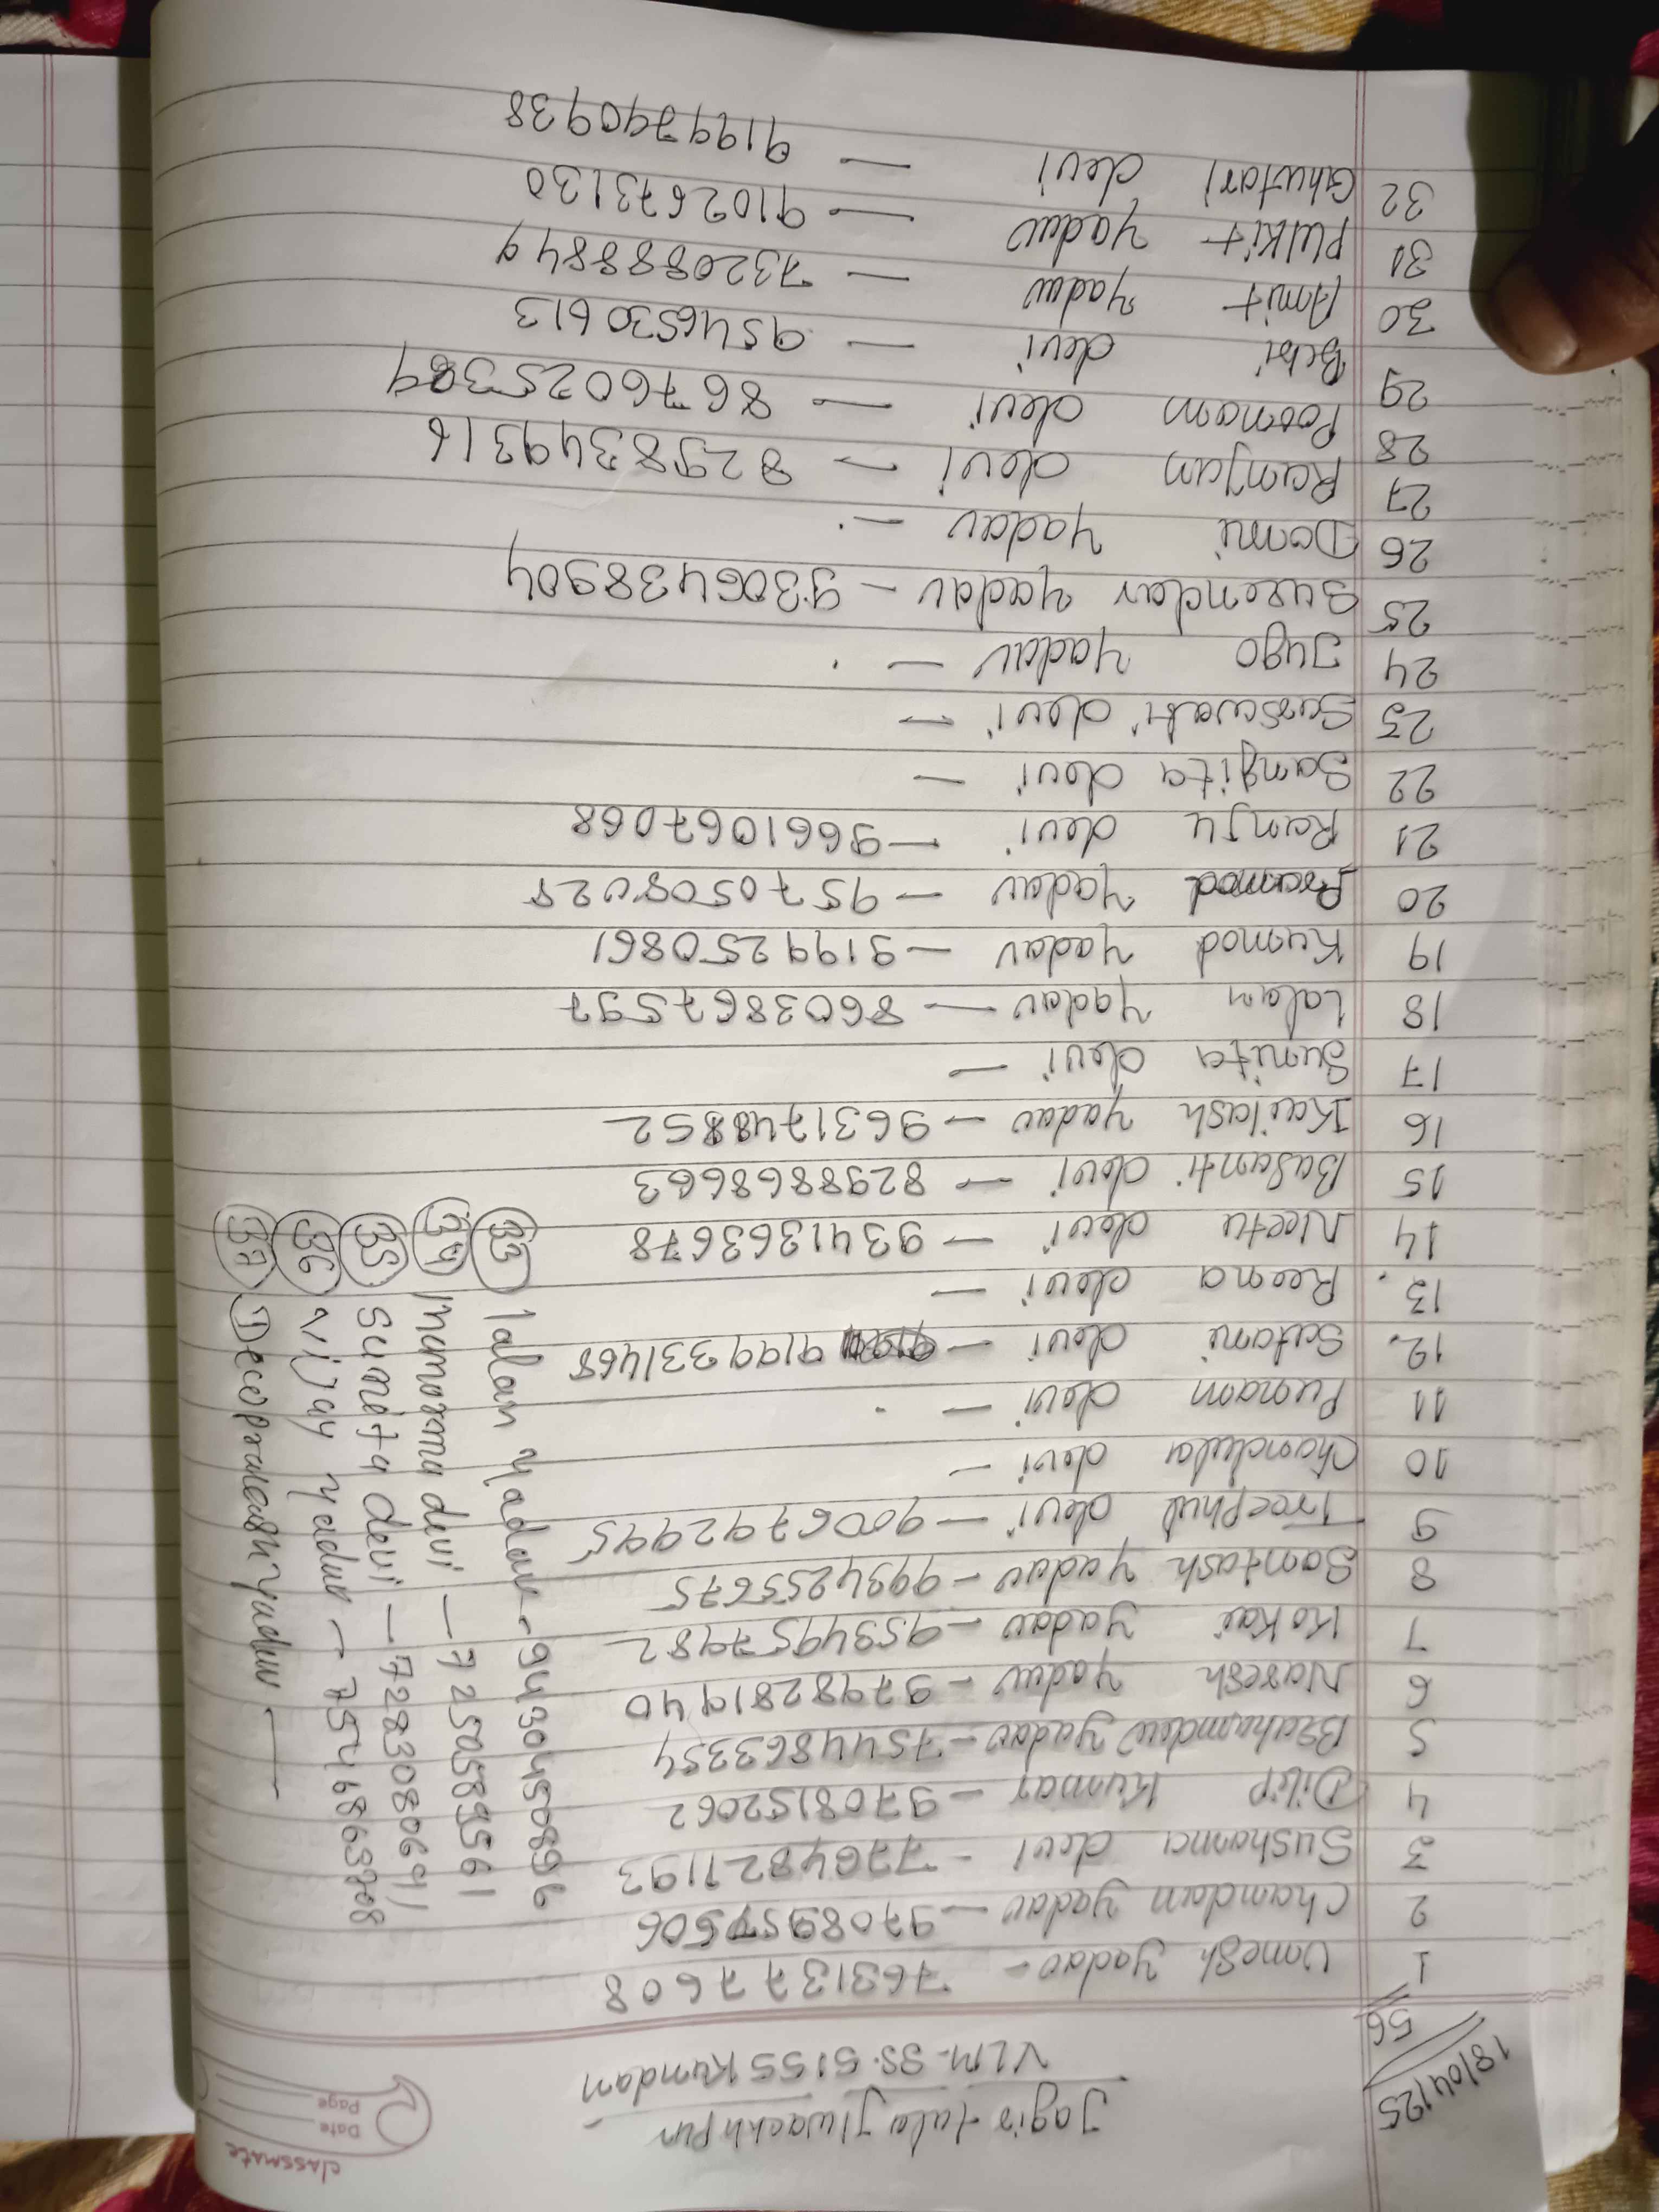 classmate
Date
Page
18/04/25
56
Jagir tula Jiwachhpur
VLM-SS.5155 Kumdan
1 Umesh Yadav - 7631377608
2 Chamdan Yadav - 9708957506
3 Sushama devi - 7764827193
4 Dilip Kumar - 9708152062
5 Brahamdew Yadav - 7544863354
6 Naresh Yadav - 9798281940
7 Kokai Yadav - 9534957982
8 Santosh Yadav - 9934255675
9 Treephul devi - 9006792995
10 Chandula devi -
11 Punam devi -
12. Sulami devi - 9199331468
13. Reena devi -
14 Neetu devi - 9341363678
15 Basanti devi - 829886863
16 Kailash Yadav - 9631748852
17 Sumita devi -
18 Lalan Yadav - 8603867597
19 Kumod Yadav - 9199250861
20 Pramod Yadav - 9570508028
21 Ranju devi - 9661067068
22 Sangita devi -
23 Sarswati devi -
24 Jugo Yadav -
25 Surendar Yadav - 9306438904
26 Domi Yadav -
27 Ramjan devi - 8298349316
28 Poonam devi - 8676025389
29 Bebi devi - 9546530613
30 Amit Yadav - 7320888849
31 Pulkit Yadav - 9102673130
32 Ghutari devi - 9199790938
33 lalan Yadav - 9430450896
34 Manorama devi - 7250589561
35 Sunita devi - 7283080691
36 Vijay Yadav - 7546863908
37 Deepprakash Yadav -